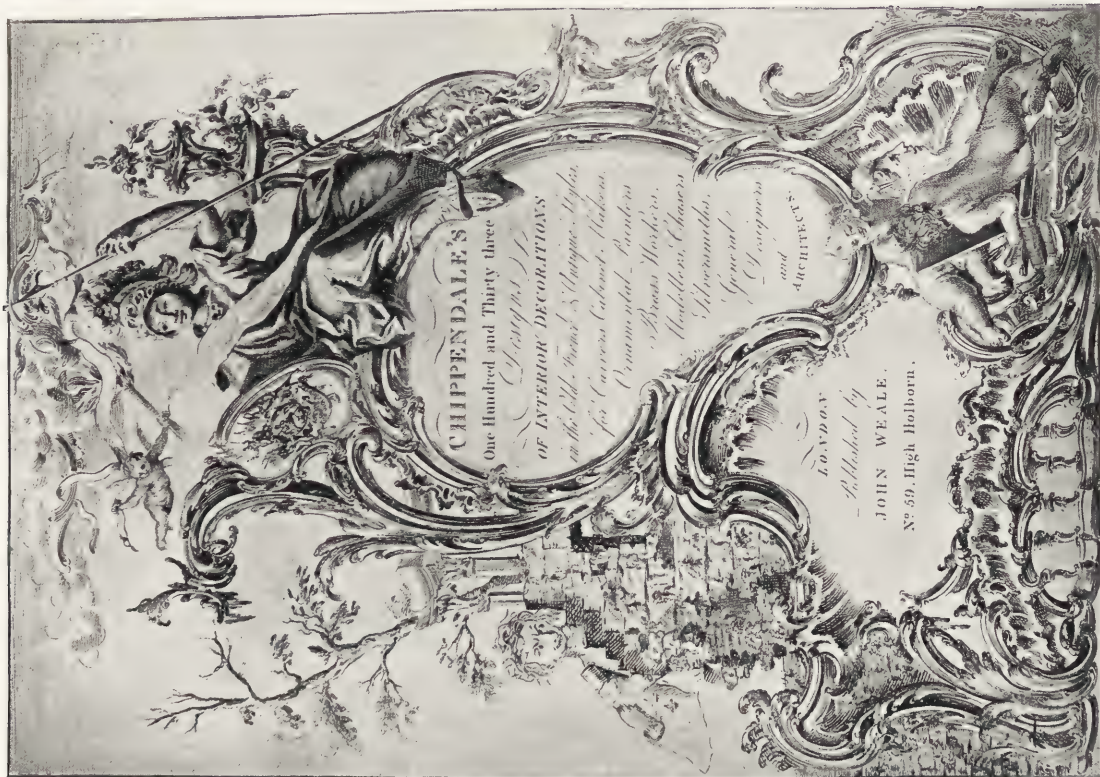 CHIPPENDALE'S
One Hundred and Thirty three
Designs
OF INTERIOR DECORATIONS
in the Old French & Antique Styles,
for Carvers, Cabinet Makers
Ornamental-Painters
Brass Workers,
Modellers, Chasers
Silversmiths,
General
Designers
and
ARCHITECTS.
LONDON
Published by
JOHN WEALE.
No. 59. High Holborn.